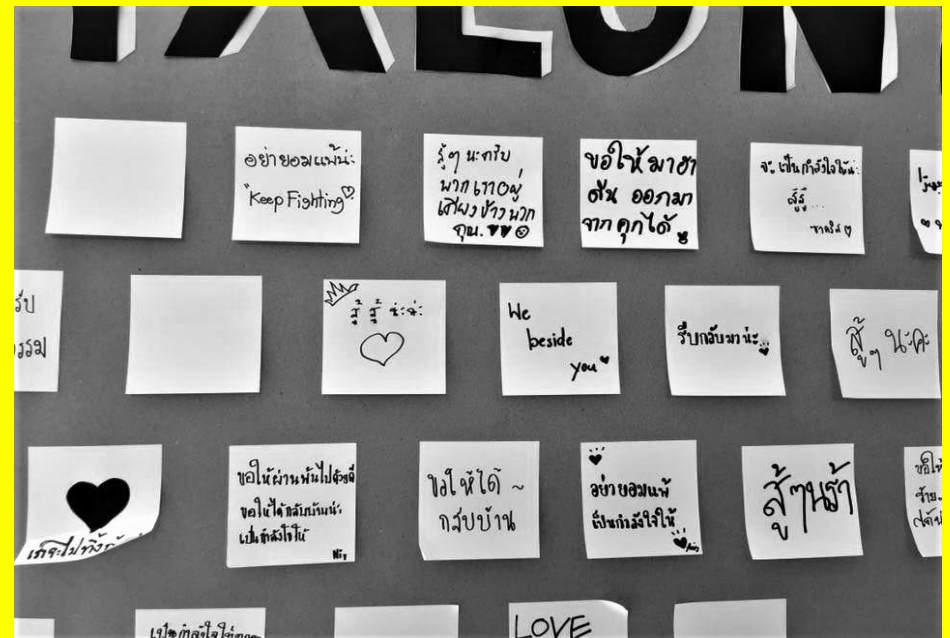 อย่ายอมแพ้น่ะ
"Keep Fighting"
สู้ๆ นะครับ
พวกเราอยู่
เคียงข้างพวก
คุณ.
ขอให้มาฮา
ดีน ออกมา
จากคุกได้
จะเป็นกำลังใจให้น่ะ
สู้สู้...
รับ
สู้ สู้ น่ะค่ะ
We
beside
you
รีบกลับมาน่ะ
สู้ๆ นะคะ
ขอให้ผ่านพ้นไปด้วยดี
ขอให้ได้กลับบ้านน่ะ
เป็นกำลังใจให้
ขอให้ได้ ~
กลับบ้าน
อย่ายอมแพ้
เป็นกำลังใจให้
สู้ๆนร้า
ขอให้
LOVE